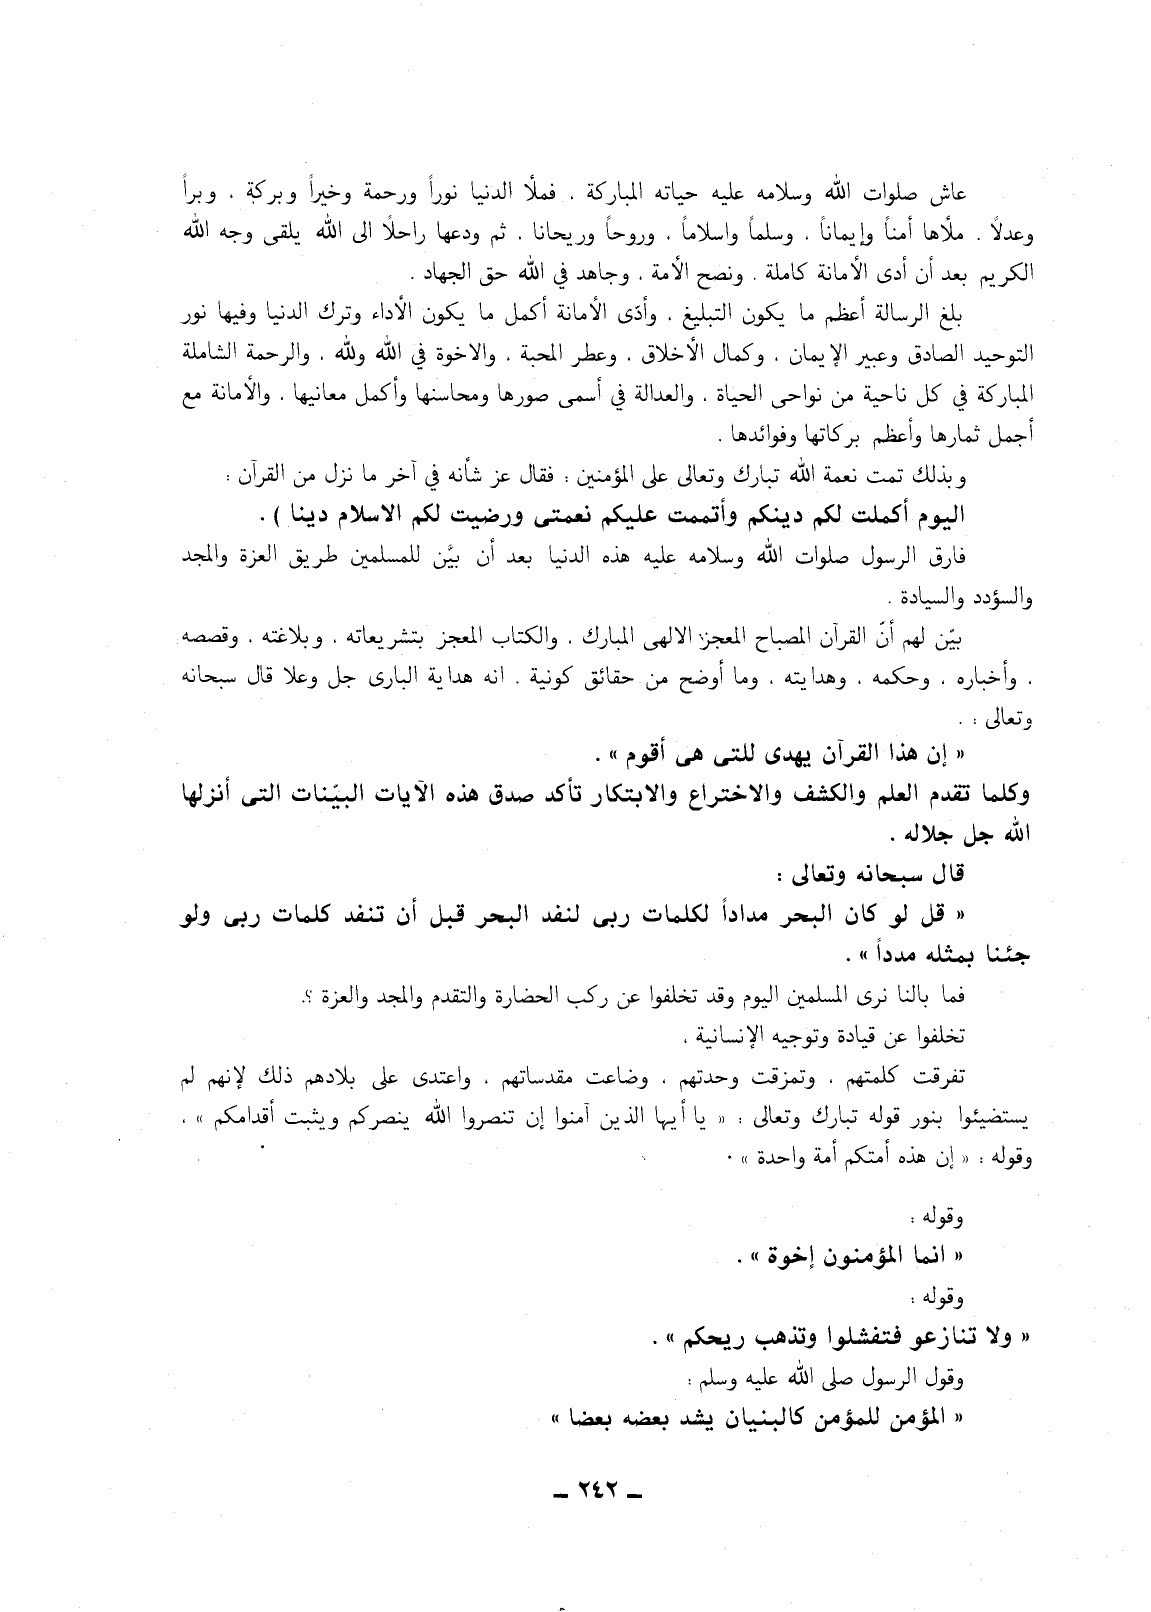 عاش صلوات الله وسلامه عليه حياته المباركة ، فملأ الدنيا نوراً ورحمة وخيراً وبركة ، وبراً
وعدلاً . ملأها أمناً وإيماناً ، وسلماً واسلاماً ، وروحاً وريحانا ، ثم ودعها راحلاً الى الله يلقى وجه الله
الكريم بعد أن أدى الأمانة كاملة ، ونصح الأمة ، وجاهد في الله حق الجهاد .
بلغ الرسالة أعظم ما يكون التبليغ ، وأدّى الأمانة أكمل ما يكون الأداء وترك الدنيا وفيها نور
التوحيد الصادق وعبير الإيمان ، وكمال الأخلاق ، وعطر المحبة ، والاخوة في الله ولله ، والرحمة الشاملة
المباركة في كل ناحية من نواحى الحياة ، والعدالة في أسمى صورها ومحاسنها وأكمل معانيها ، والأمانة مع
أجمل ثمارها وأعظم بركاتها وفوائدها .
وبذلك تمت نعمة الله تبارك وتعالى على المؤمنين : فقال عز شأنه في آخر ما نزل من القرآن :
اليوم أكملت لكم دينكم وأتممت عليكم نعمتى ورضيت لكم الاسلام دينا ) .
فارق الرسول صلوات الله وسلامه عليه هذه الدنيا بعد أن بيَّن للمسلمين طريق العزة والمجد
والسؤدد والسيادة .
بيّن لهم أنّ القرآن المصباح المعجز الالهى المبارك ، والكتاب المعجز بتشريعاته ، وبلاغته ، وقصصه
، وأخباره ، وحكمه ، وهدايته ، وما أوضح من حقائق كونية . انه هداية البارى جل وعلا قال سبحانه
وتعالى : .
« إن هذا القرآن يهدى للتى هى أقوم » .
وكلما تقدم العلم والكشف والاختراع والابتكار تأكد صدق هذه الآيات البيّنات التى أنزلها
الله جل جلاله .
قال سبحانه وتعالى :
« قل لو كان البحر مداداً لكلمات ربى لنفد البحر قبل أن تنفد كلمات ربى ولو
جئنا بمثله مدداً » .
فما بالنا نرى المسلمين اليوم وقد تخلفوا عن ركب الحضارة والتقدم والمجد والعزة ؟.
تخلفوا عن قيادة وتوجيه الإنسانية ،
تفرقت كلمتهم ، وتمزقت وحدتهم ، وضاعت مقدساتهم ، واعتدى على بلادهم ذلك لإنهم لم
يستضيئوا بنور قوله تبارك وتعالى : « يا أيها الذين آمنوا إن تنصروا الله ينصركم ويثبت أقدامكم » ،
وقوله : « إن هذه أمتكم أمة واحدة » .
وقوله :
« انما المؤمنون إخوة » .
وقوله :
« ولا تنازعو فتفشلوا وتذهب ريحكم » .
وقول الرسول صلى الله عليه وسلم :
« المؤمن للمؤمن كالبنيان يشد بعضه بعضا »
ـ ٢٤٢ ـ